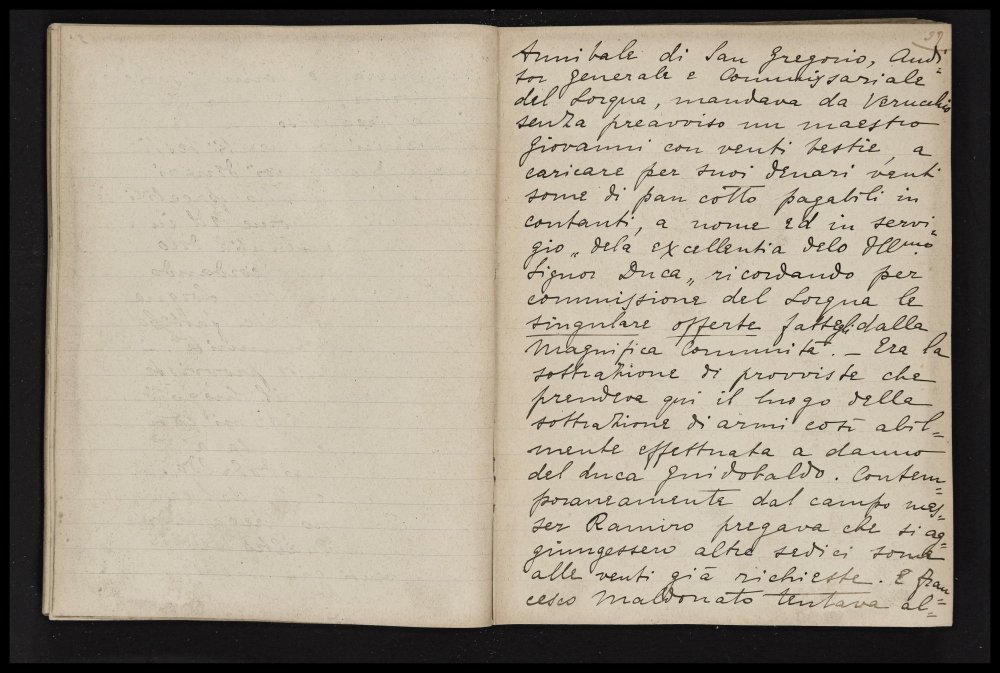 39
Annibale di San Gregorio, Audi=
tor generale e Commissariale
del Lorqua, mandava da Verucchio
senza preavviso un maestro
Giovanni con venti bestie, a
caricare per suoi denari venti
some di pan cotto pagabili in
contanti, a nome ed in servi=
gio „ dela excellentia delo Ill.mo
Signor Duca „ ricordando per
commissione del Lorqua le
singulare offerte fattegli dalla
Magnifica Comunità. — Era la
sottrazione di provviste che
prendeva qui il luogo della
sottrazione di armi così abil=
mente effettuata a danno
del duca Guidobaldo. Contem=
poraneamente dal campo mes=
ser Ramiro pregava che si ag=
giungessero altre sedici some
alle venti già richieste. E Fran=
cesco Maldonato tentava al=